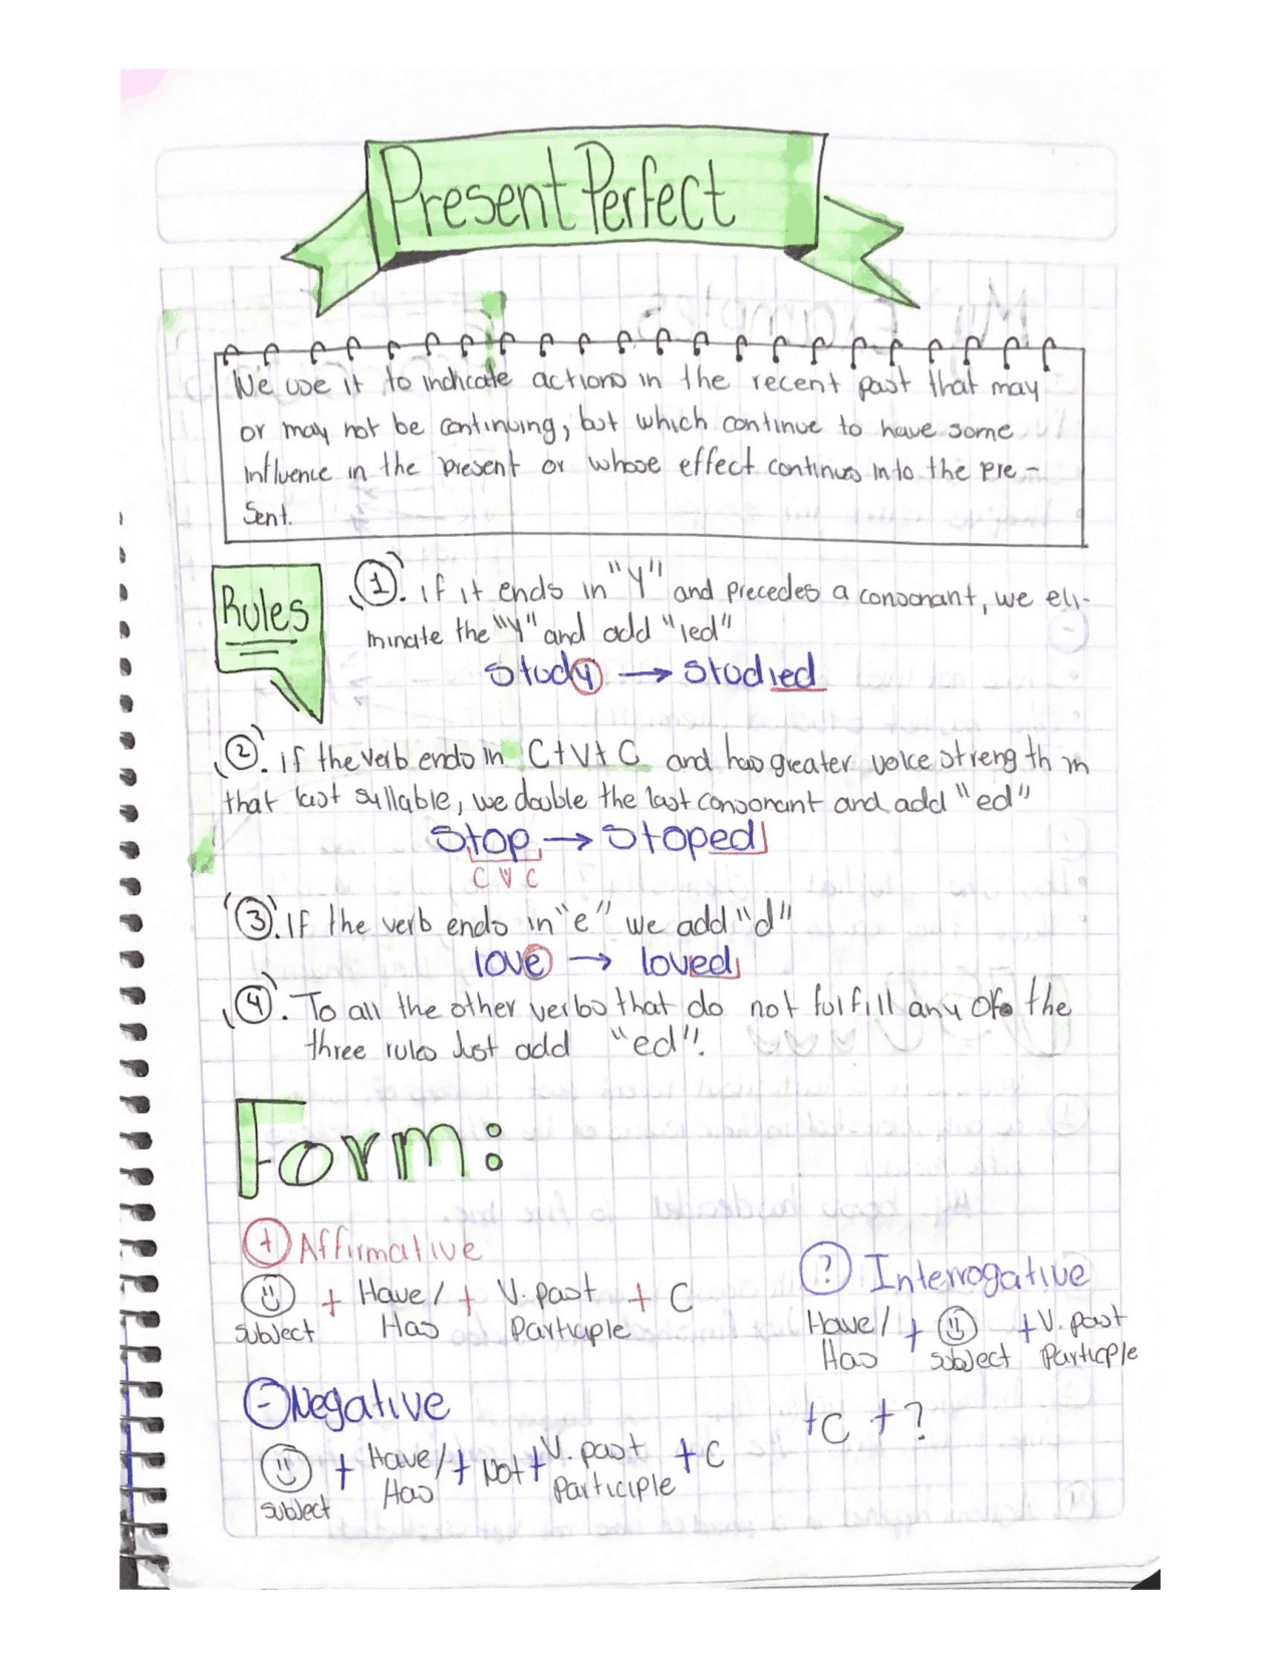 Present Perfect
We use it to indicate actions in the recent past that may
or may not be continuing, but which continue to have some
influence in the present or whose effect continues into the pre-
sent.
Rules
1. if it ends in "Y" and precedes a consonant, we eli-
minate the "Y" and add "ied"
Study → Studied
2. if the verb ends in C+V+C and has greater voice strength in
that last syllable, we double the last consonant and add "ed"
Stop → Stoped
C V C
3. If the verb ends in "e" we add "d"
love → loved
4. To all the other verbs that do not fulfill any of the
three rules Just add "ed".
Form:
+ Affirmative
+ Have/ + V. past + C
subject Has Participle
? Interrogative
Have/ + + V. past
Has subject Participle
+C + ?
- Negative
+ Have/ + Not + V. past + C
subject Has Participle